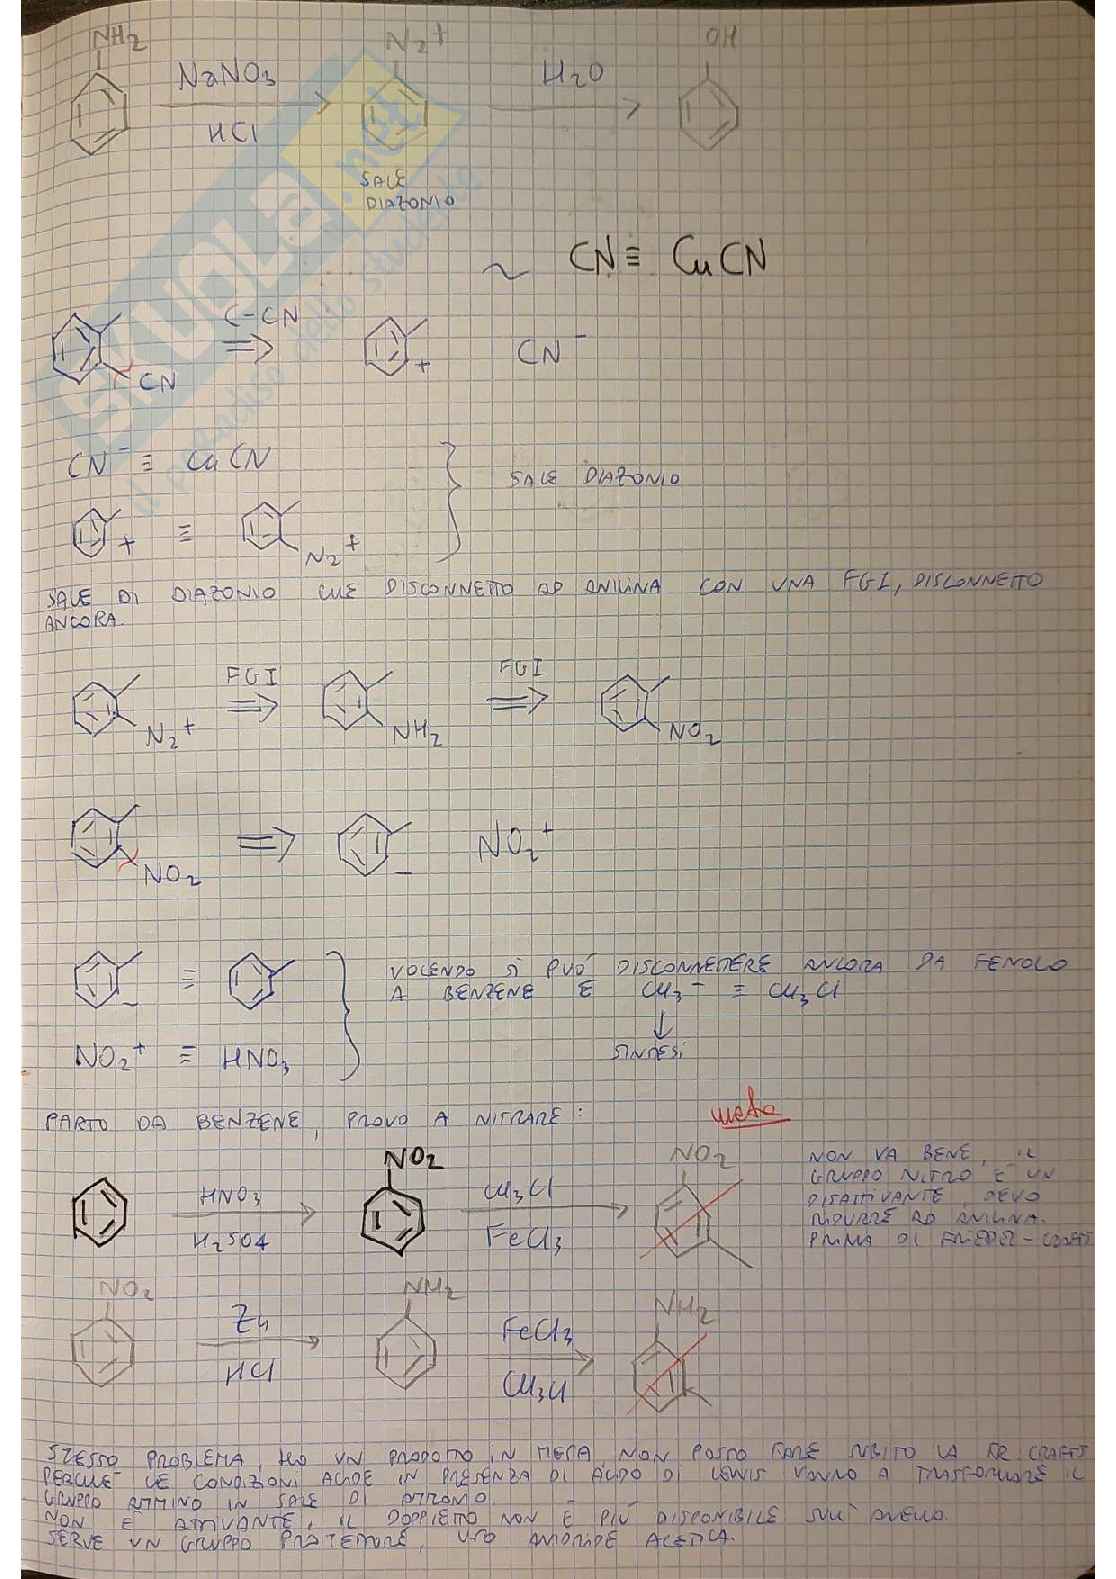 NH2 N2+ OH
NaNO3 H2O
HCl
SALE
DIAZONIO
SKUOLA.net
il paradiso dello studente
~ CN≡ CuCN
C-CN
CN + CN-
CN- ≡ CuCN
SALE DIAZONIO
+ ≡ N2+
SALE DI DIAZONIO CHE DISCONNETTO AD ANILINA CON UNA FGI, DISCONNETTO
ANCORA.
FGI FGI
N2+ NH2 NO2
NO2 NO2+
≡ VOLENDO SI PUÒ DISCONNETTERE ANCORA DA FENOLO
A BENZENE E CH3- ≡ CH3Cl
NO2+ ≡ HNO3 SINTESI
PARTO DA BENZENE, PROVO A NITRARE: meta
NO2 NO2
HNO3 CH3Cl
H2SO4 FeCl3
NON VA BENE, IL
GRUPPO NITRO È UN
DISATTIVANTE, DEVO
RIDURRE AD ANILINA
PRIMA DI FRIEDEL-CRAFTS
NO2 NH2 NH2
Zn FeCl3
HCl CH3Cl
STESSO PROBLEMA, HO UN PRODOTTO IN META NON POSSO FARE SUBITO LA FR. CRAFTS
PERCHÉ LE CONDIZIONI ACIDE IN PRESENZA DI ACIDO DI LEWIS VANNO A TRASFORMARE IL
GRUPPO AMMINO IN SALE DI
NON È ATTIVANTE, IL DOPPIETTO NON È PIÙ DISPONIBILE SULL'ANELLO.
SERVE UN GRUPPO PROTETTORE, USO ANIDRIDE ACETICA.